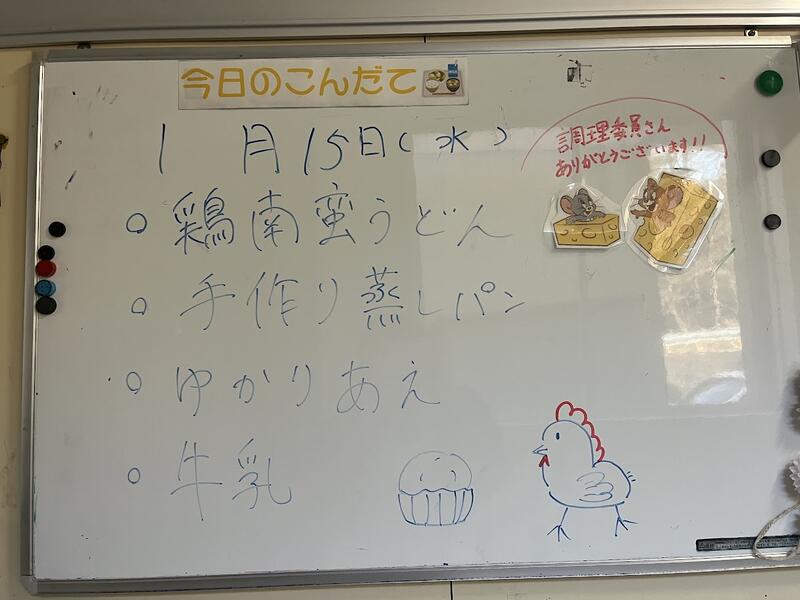 今日のこんだて
1月15日(水)
調理委員さん
ありがとうございます!!
○ 鶏南蛮うどん
○ 手作り蒸しパン
○ ゆかりあえ
○ 牛乳